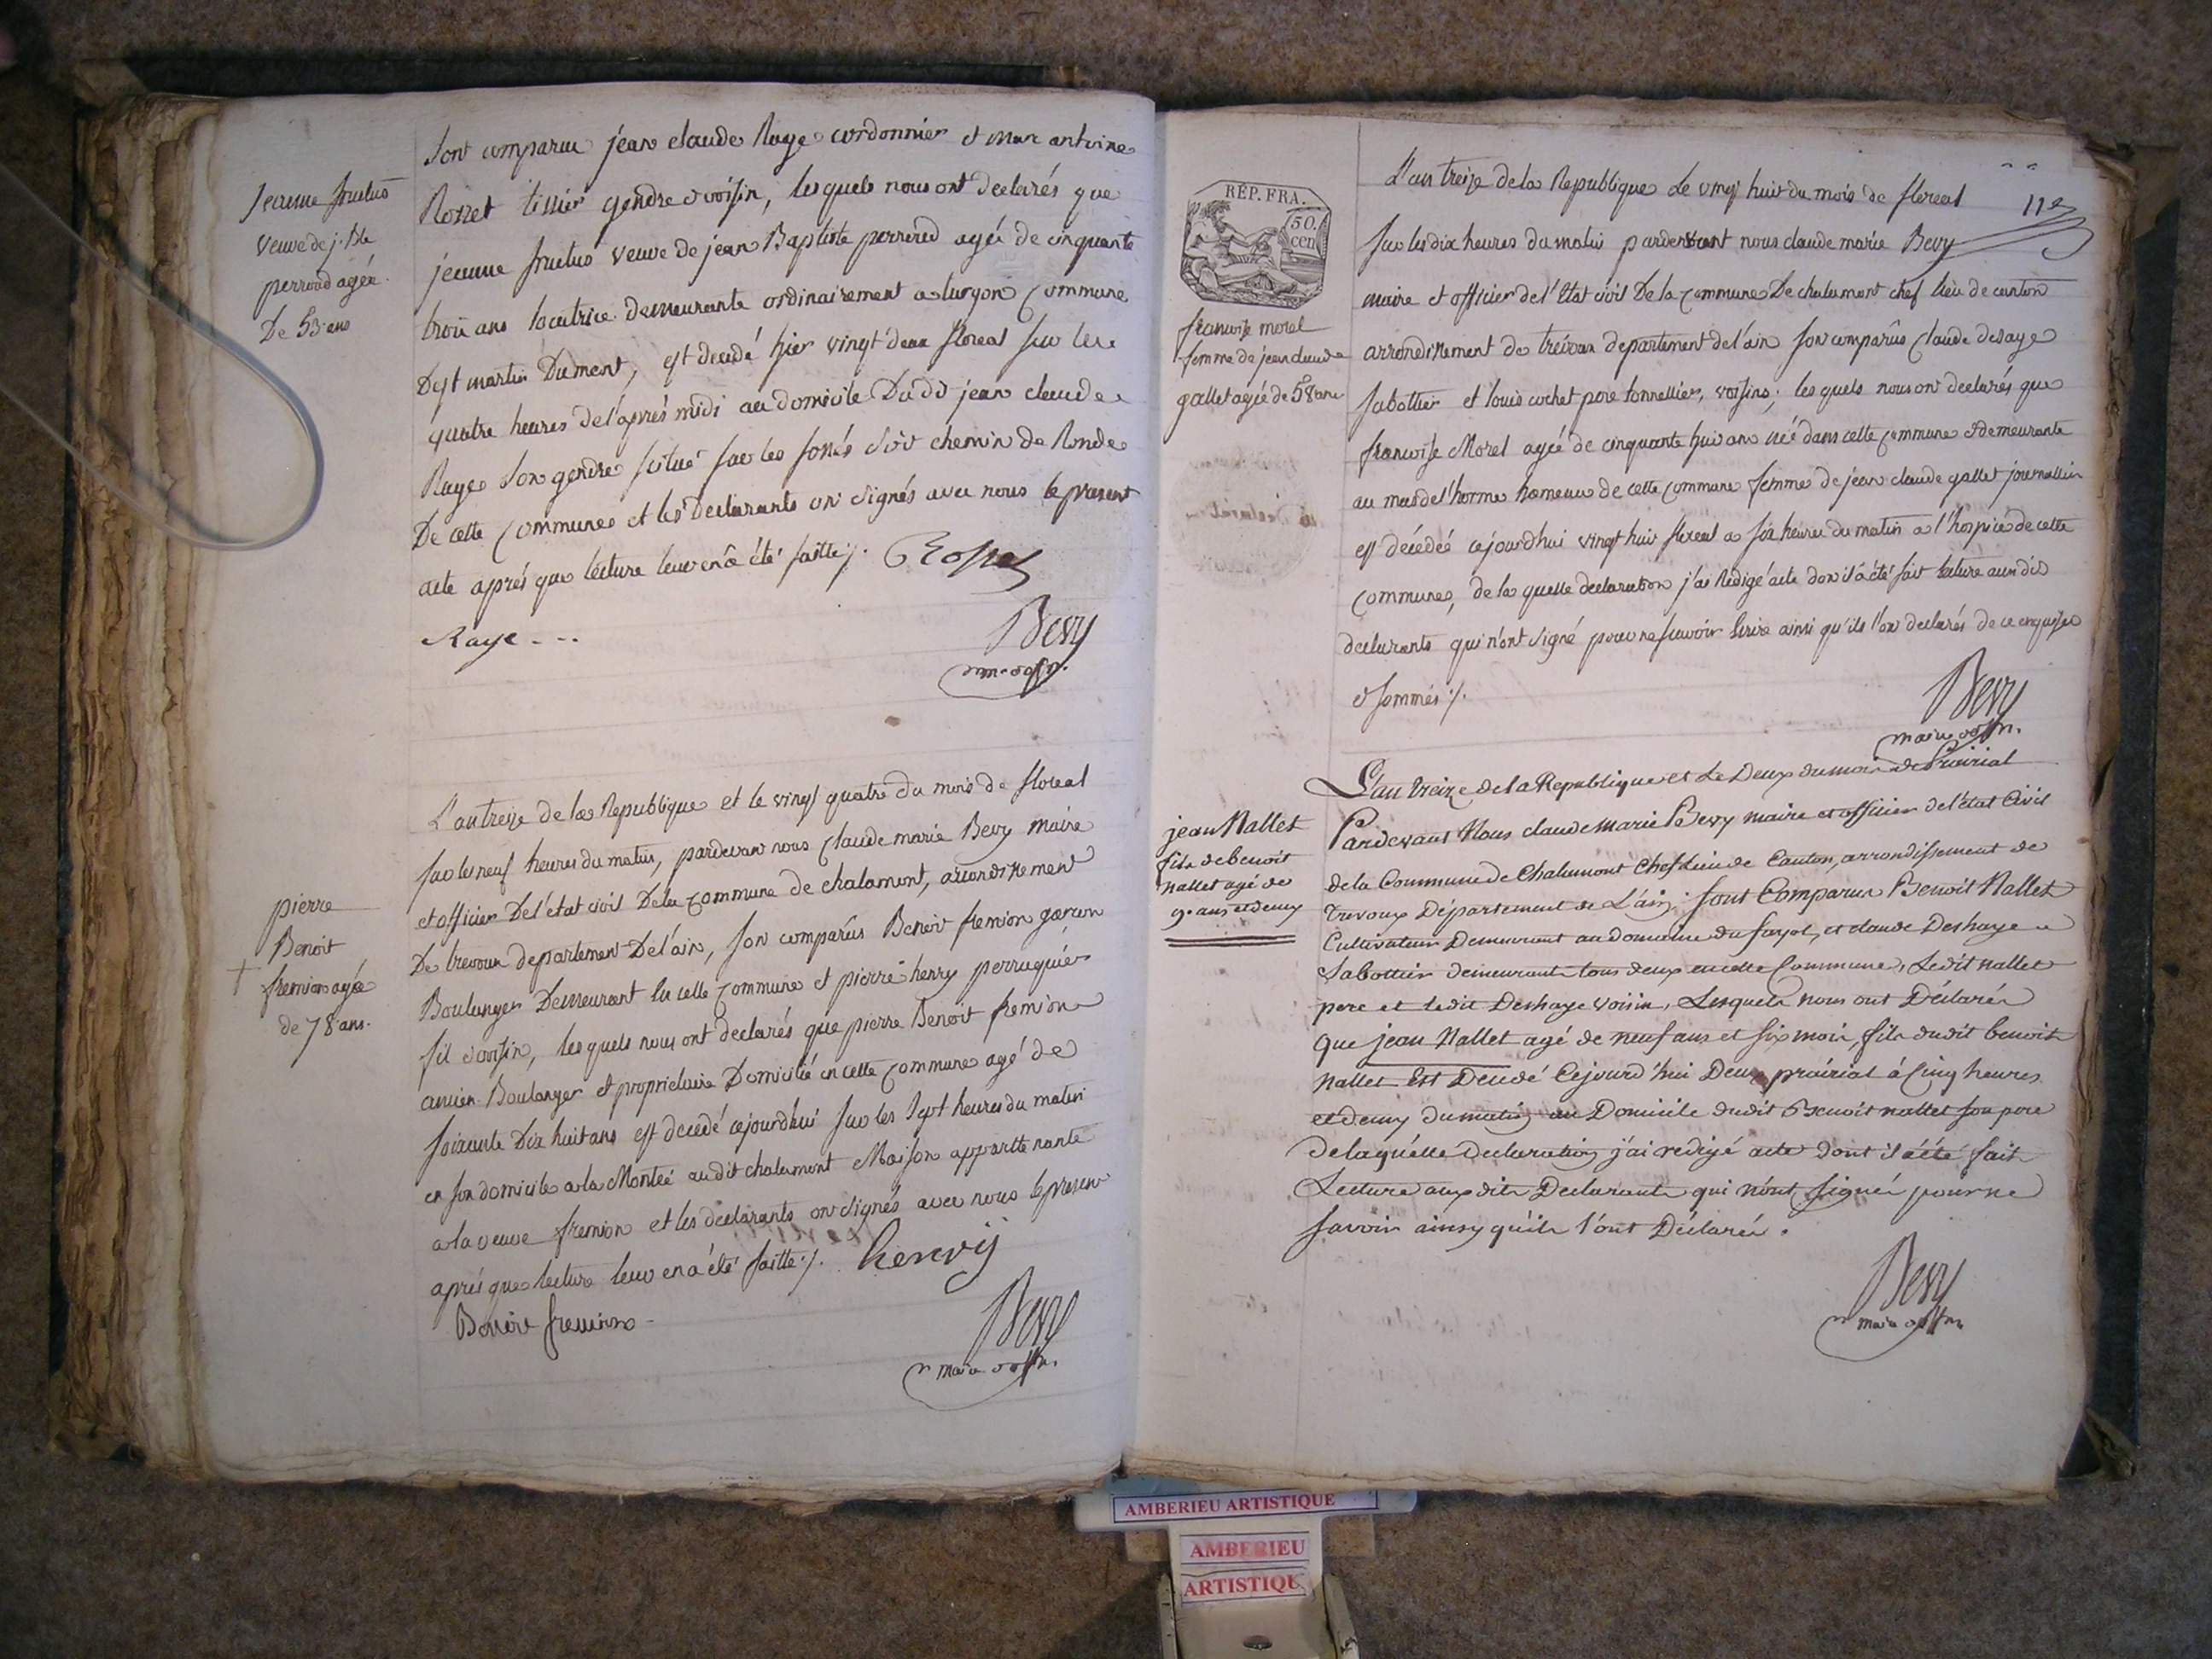 Sont comparu jean claude Raye cordonnier et marc antoine
Rosset tissier gendre & voisin, lesquels nous ont declarés que
jeanne fructus veuve de jean Baptiste perrord agée de cinquante
trois ans locatrice demeurante ordinairement a lurçon Commune
Dest martin Dument, est decedé hier vingt deux floreal sur les
quatre heures de l'aprés midi au domicile Du dit jean claude
Raye son gendre situé sur les fossés Soit chemin de Ronde
De cette Commune et les Declarants on signés avec nous le present
acte aprés que lécture leur en â été faitte ./.
Rosset
Raye - - -
Bevy
Jeanne fructus
veuve de j. Bte
perroud agée
De 53 ans
L'an treize de la Republique et le vingt quatre du mois de floreal
sur les neuf heures du matin, pardevant nous Claude marie Bevy maire
et officier De l'état civil Dela Commune de chalamont, arrondissement
De trevoux departement De l'ain, son comparûs Benoit fremion garçon
Boulanger Demeurant en cette Commune et pierre henry perruquier
fil & voisin, lesquels nous ont declarés que pierre Benoit fremion
ancien Boulanger et proprietaire Domicilié en cette Commune agé de
soixante Dix huit ans est decedé cejourdhui sur les sept heures du matin
en son domicile a la Montée audit chalamont Maison appartenante
a la veuve fremion et les declarants on signés avec nous le present
aprés que lecture leur en a été faitte ./. henrij
Benoit fremion -
Bevy
maire
pierre
Benoit
fremion agée
de 78 ans.
RÉP. FRA.
50.
cen
11e
L'an treize de la Republique Le vingt huit du mois de floreal
sur les dix heures du matin pardevant nous claude marie Bevy
maire et officier de l'Etat civil De la Commune De chalamont chef lieu de canton
arrondissement de trévoux departement de l'ain son comparûs Claude desaye
sabottier et louis cochet pere tonnellier, voisins, lesquels nous on declarés que
francoise Morel agée de cinquante huit ans née dans cette Commune & demeurante
au mas de l'horme hameau de cette Commune femme de jean claude gallet journallier
est décédée cejourdhui vingt huit floreal a six heures du matin a l'hospice de cette
Commune, de la quelle declaration j'ai Redigé acte don il a été fait lecture aux dit
declarants qui n'ont signé pour ne savoir Ecrire ainsi qu'ils l'on declarés de ce enquis
& sommés ./.
Bevy
maire
francoise morel
femme de jean claude
gallet agée de 58 ans
L'an treize de la Republique et Le Deux du mois de Prairial
Pardevant Nous claude Marie Bevy maire et officier de l'état Civil
de la Commune de Chalamont Chef Lieu de Canton, arrondissement de
Trevoux Département de L'ain; Sont Comparus Benoit Nallet
Cultivateur Demeurant au domaine du fayol, et claude Deshaye
Sabottier demeurants tous deux en cette Commune, Ledit Nallet
pere et ledit Deshaye voisin, Lesquels nous ont Déclarés
que jean Nallet agé de neuf ans et six mois, fils dudit benoit
Nallet Est Decédé Cejourd'hui Deux prairial à Cinq heures
et demy du matin au Domicile dudit Benoit Nallet son pere
de laquélle Declaration j'ai redigé acte dont il a été fait
Lecture aux dits Declarants qui n'ont signés pour ne
savoir ainsy qu'ils l'ont Déclarés.
Bevy
maire
jean Nallet
fils de benoit
nallet agé de
9. ans et demy
AMBERIEU ARTISTIQUE
AMBERIEU
ARTISTIQU